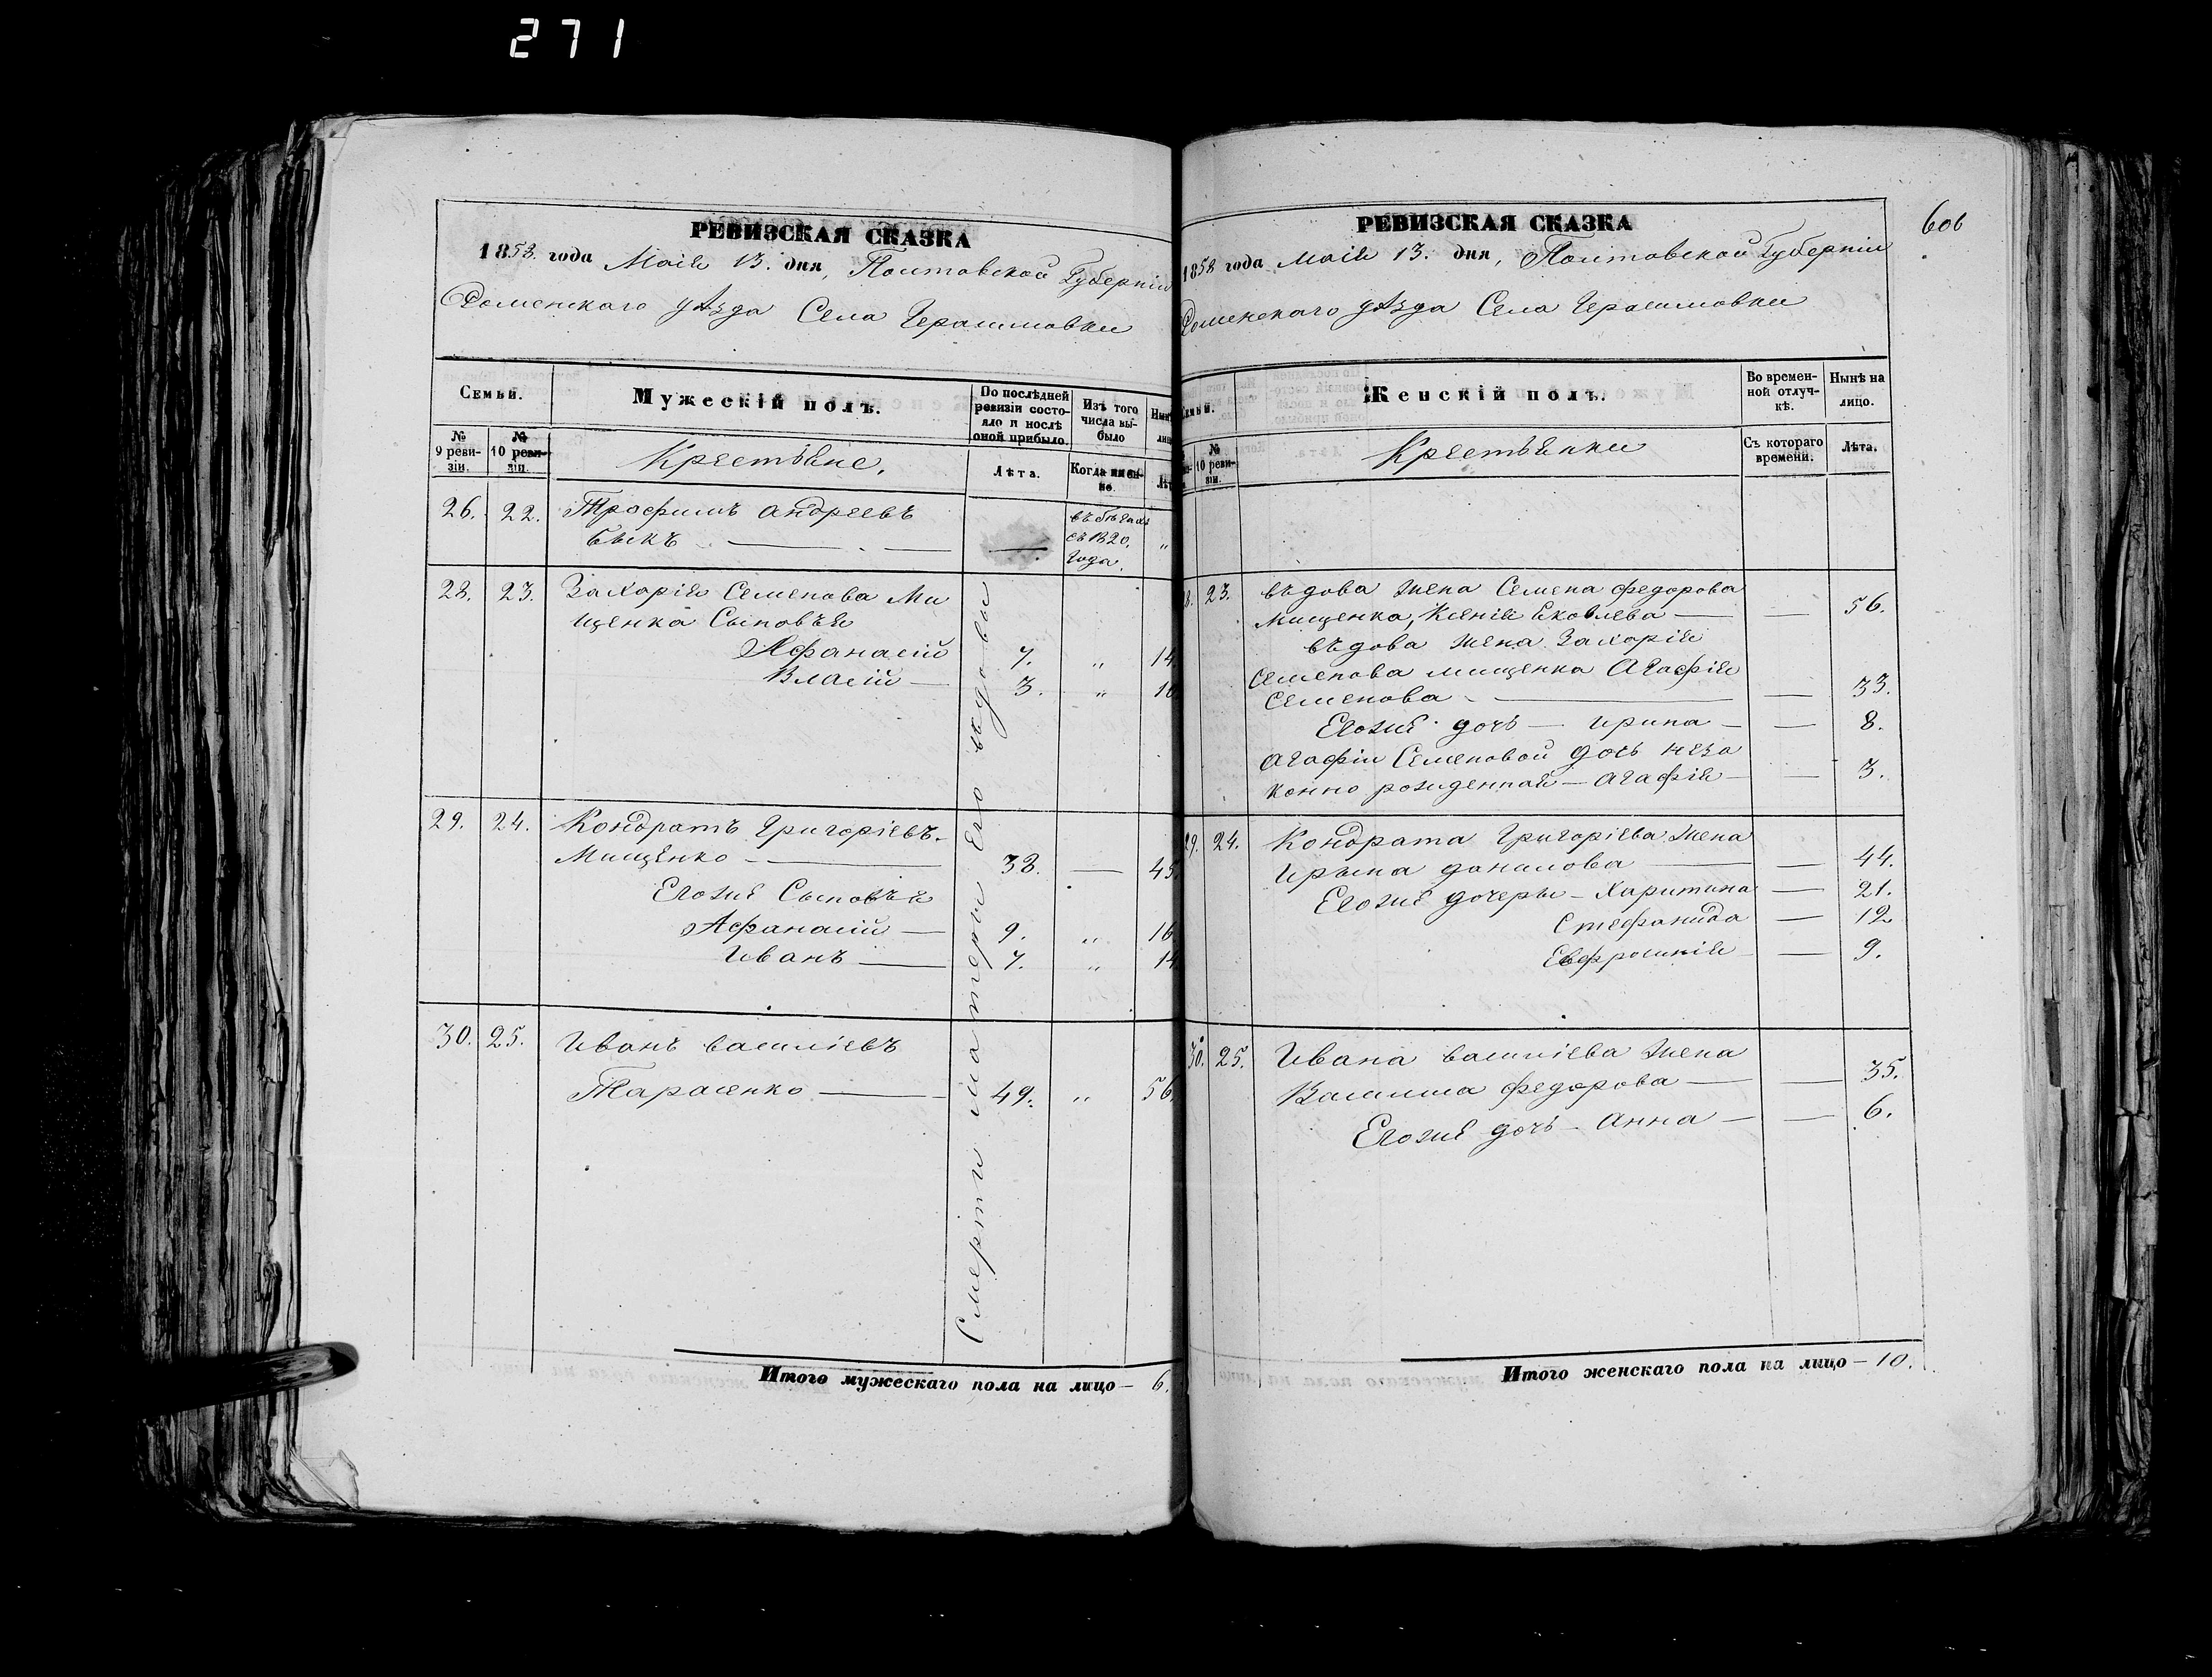 271
РЕВИЗСКАЯ СКАЗКА
1858. года Маія 13. дня, Полтавской Губерніи
Роменскаго уѣзда Села Герасимовки
Семьи.
Мужескій полъ.
По послѣдней ревизіи состояло и послѣ оной прибыло.
Изъ того числа выбыло
№ 9 ревизіи.
№ 10 ревизіи.
Крестьяне.
Лѣта.
Когда именно.
26. 22. Трофимъ Андреевъ
Быкъ — — въ бѣгахъ съ 1820. года. „
28. 23. Захарія Семенова Ми
щенка Сыновья
Афанасій 7. „ 14
Власій — 3. „ 10
29. 24. Кондратъ Григоріевъ
Мищенко — 38. — 45.
Егожъ Сыновья
Афанасій — 9. „ 16
Иванъ — 7. „ 14
30. 25. Иванъ Василіевъ
Тарасенко — 49. „ 56.
Смерти матери его вдовы
Итого мужескаго пола на лицо — 6.
606
РЕВИЗСКАЯ СКАЗКА
1858 года Маія 13. дня, Полтавской Губерніи
Роменскаго уѣзда Села Герасимовки
Женскій полъ.
Во временной отлучкѣ.
Нынѣ на лицо.
№ 10 ревизіи.
Крестьянки
Съ котораго времени.
Лѣта.
8. 23. вѣдова жена Семена Федорова
Мищенка, Ксенія Яковлева — — 56.
вѣдова жена Захарія
Семенова мищенка Агафія
Семенова — — 33.
Егожъ дочь — Ирина — — 8.
Агафіи Семеновой дочь неза
конно рожденная — Агафія — — 3.
29. 24. Кондрата Григоріева жена
Ирына данилова — — 44.
Егожъ дочеры — Харитина — 21.
Стефанида — 12
Евфросинія — 9.
30. 25. Ивана василіева жена
Василиса федорова — — 35.
Егожъ дочь — Анна — — 6.
Итого женскаго пола на лицо — 10.